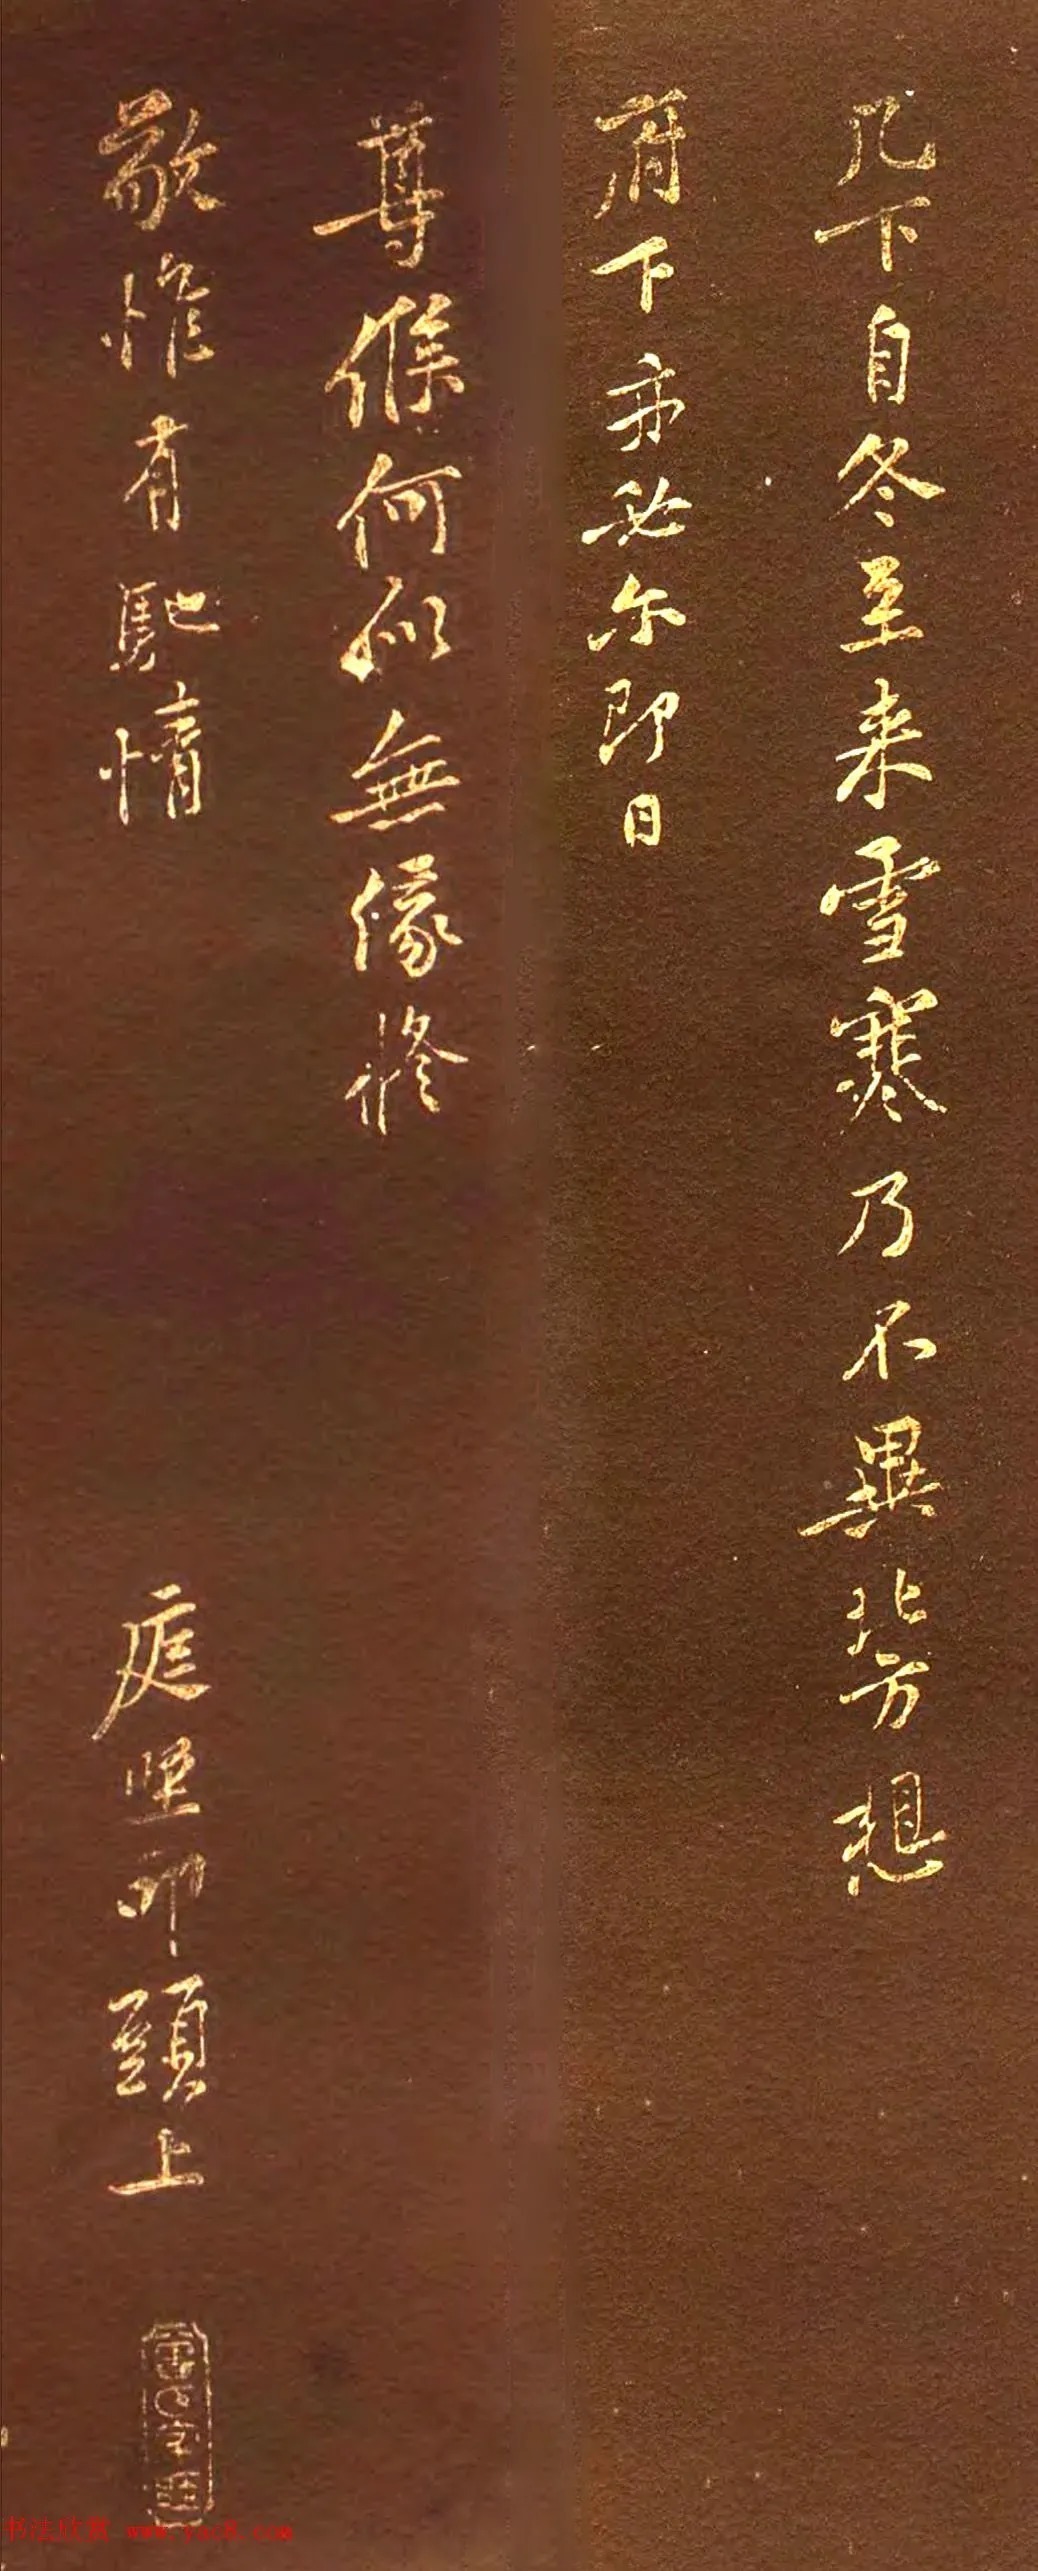 几下自冬至来雪寒乃不異北方想
府下亦必尔即日
尊候何似無缘修
敬惟有馳情
庭堅叩頭上
书法欣赏 www.yac8.com